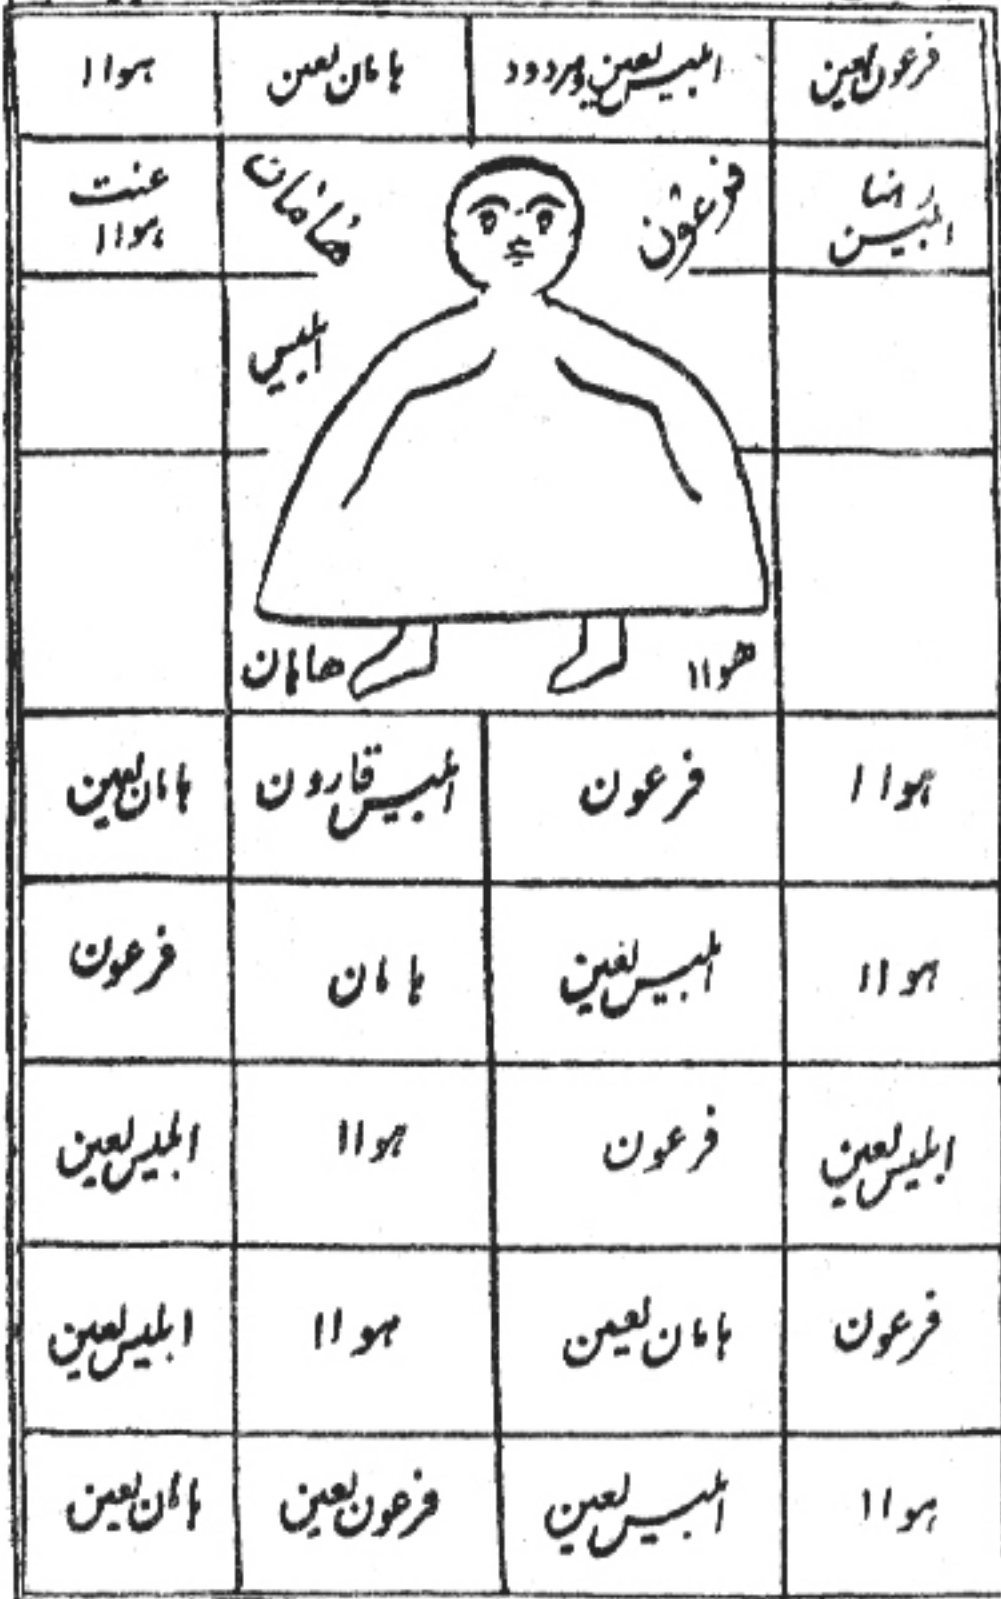 فرعون لعین
ابلیس لعین و مردود
ہامان لعین
ہو ۱۱
ابلیس
فرعون
هامان
ہو ۱۱
ابلیس
هو ۱۱
هامان
ہو ۱ ۱
فرعون
ابلیس قارون
ہامان لعین
ہو ۱۱
ابلیس لعین
ہامان
فرعون
ابلیس لعین
فرعون
ہو ۱۱
ابلیس لعین
فرعون
ہامان لعین
ہو ۱۱
ابلیس لعین
ہو ۱۱
ابلیس لعین
فرعون لعین
ہامان لعین